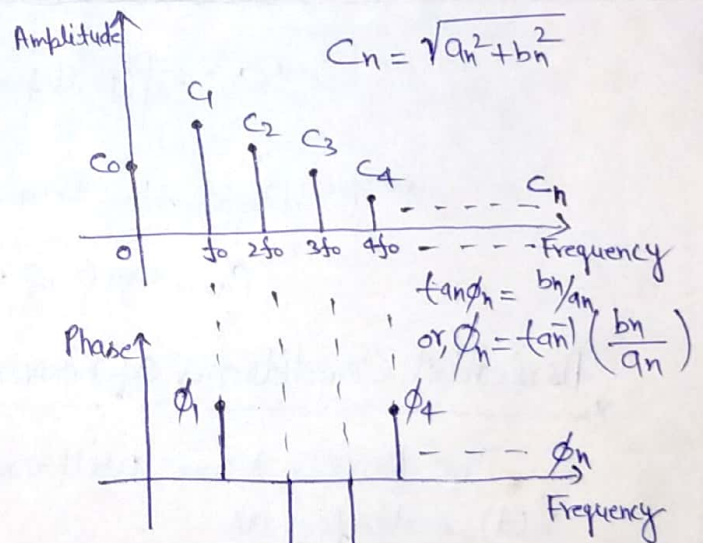 Amplitude
Cn = √an² + bn²
C1
C2
C3
C4
C0
Cn
0 f0 2f0 3f0 4f0 - - - - Frequency
tanφn = bn/an
Phase
or, φn = tan⁻¹ (bn/an)
φ1
φ4
φn
Frequency